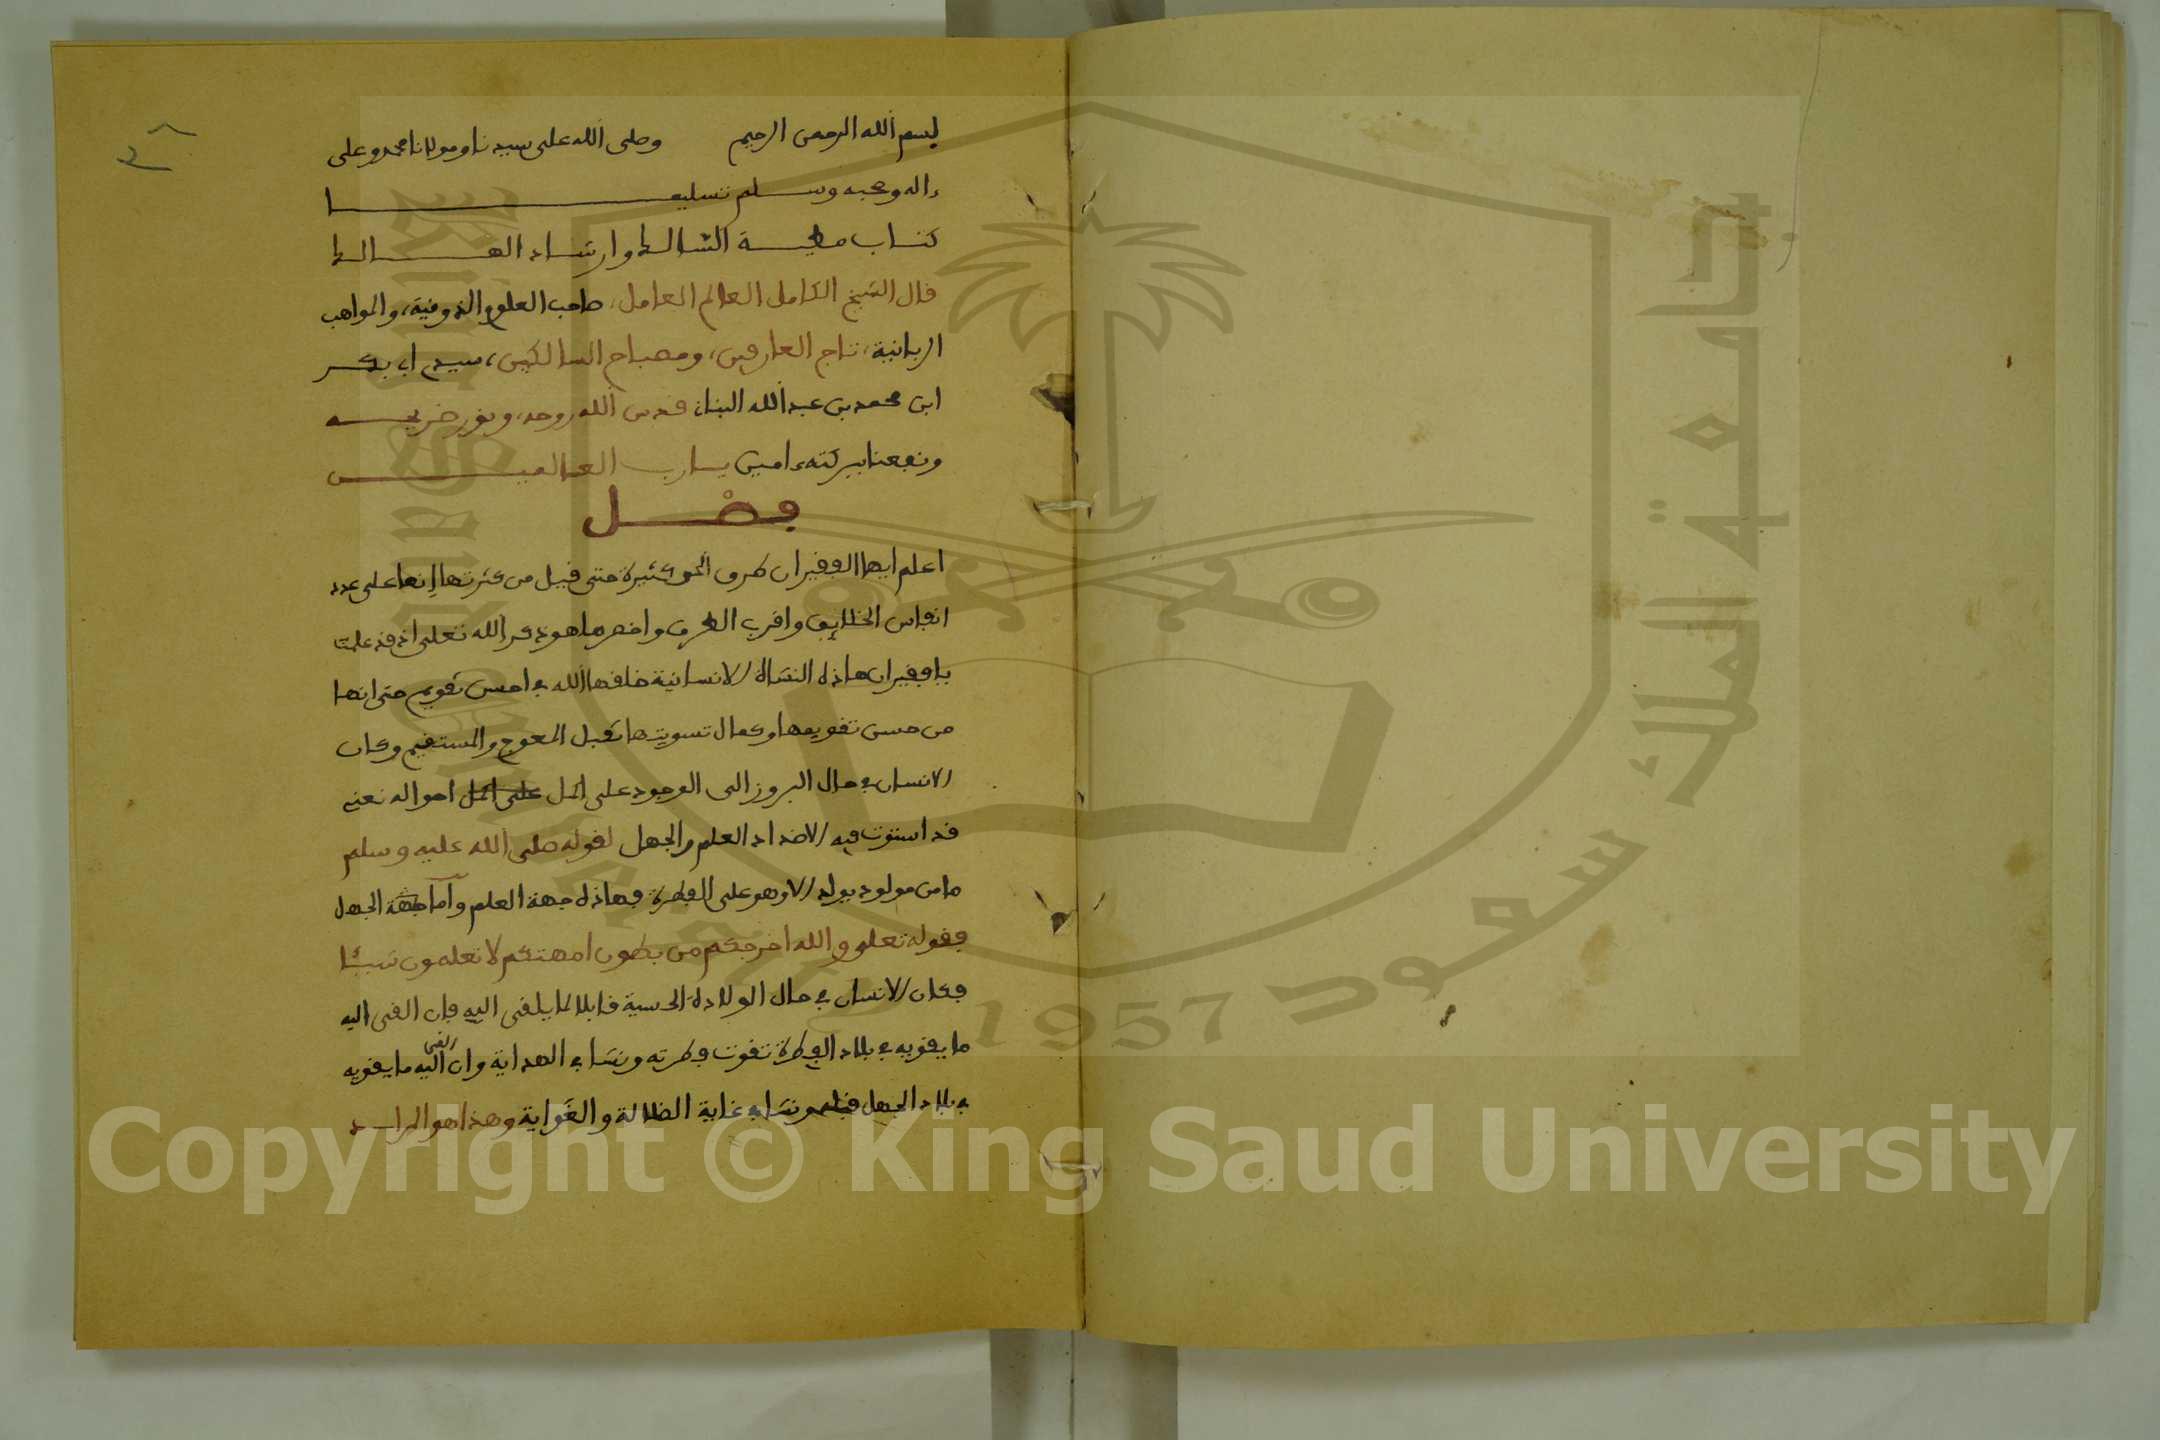 بسم الله الرحمن الرحيم وصلى الله على سيدنا ومولانا محمد وعلى
ءاله وصحبه وسلم تسليما
كتاب مطية السالك وارشاد الهالك
قال الشيخ الكامل العالم العامل، صاحب العلوم الذوقية، والمواهب
الربانية، تاج العارفين، ومصباح السالكين، سيدي ابي بكر
ابن محمد بن عبد الله البنان قدس الله روحه، ونور ضريحه
ونفعنا ببركته ءامين يارب العالمين
فصل
اعلم ايها الفقير ان طرق الحق كثيرة حتى قيل من كثرتها إنها على عدد
انفاس الخلايق واقرب الطرق واخصرها هو ذكر الله تعلى اذ قد علمت
يا فقير ان هاذه النشأة الانسانية خلقها الله في احسن تقويم حتى انها
من حسن تقويمها وكمال تسويتها تقبل المعوج والمستقيم وكان
الانسان في حال البروز الى الوجود على اكمل على اكمل احواله نعني
قد استوت فيه الاضداد العلم والجهل لقوله صلى الله عليه وسلم
ما من مولود يولد الا وهو على الفطرة فهاذه جهة العلم وأما جهة الجهل
فقوله تعلى والله اخرجكم من بطون امهتكم لا تعلمون شيئا
فكان الانسان في حال الولادة الحسية قابلا لما يلقى اليه فإن القي اليه
ما يقويه في بلاد الفطرة تقوت فطرته ونشا في الهداية وان القي اليه ما يقويه
في بلاد الجهل ونشا في غاية الظلالة والغواية وهذا هو المراد
٢
جامعة الملك سعود
King Saud University
1957
Copyright © King Saud University